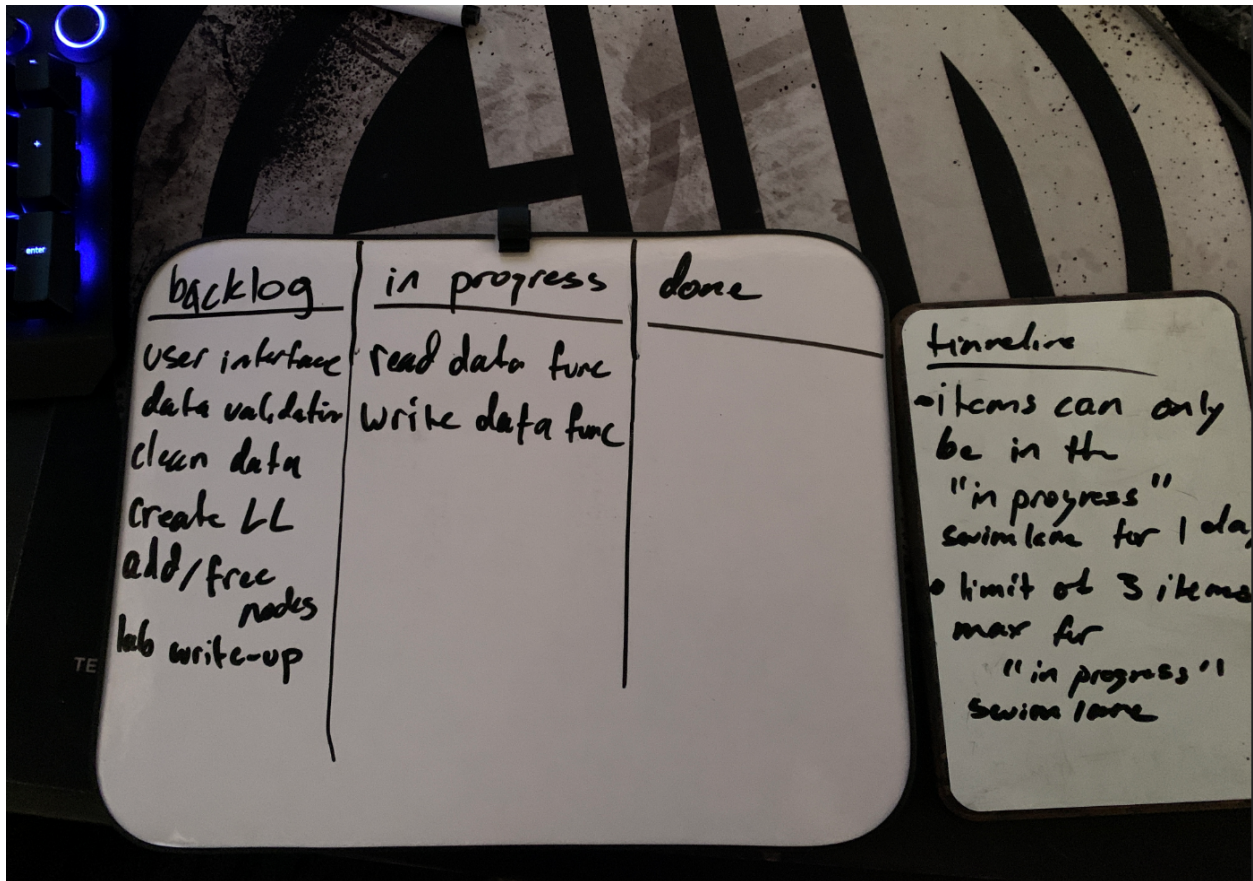 enter
TE
backlog
user interface
data validation
clean data
create LL
add/free
nodes
lab write-up
in progress
read data func
write data func
done
timeline
•items can only
be in the
"in progress"
swimlane for 1 day
• limit of 3 items
max for
"in progress"
swimlane